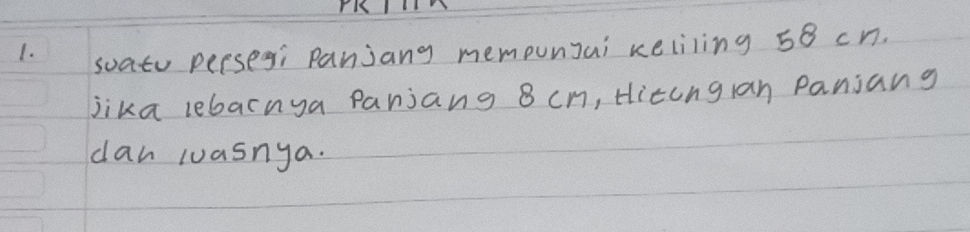 1. suatu persegi Panjang mempunyai keliling 58 cm.
jika lebarnya Panjang 8 cm, Hitunglah Panjang
dan luasnya.